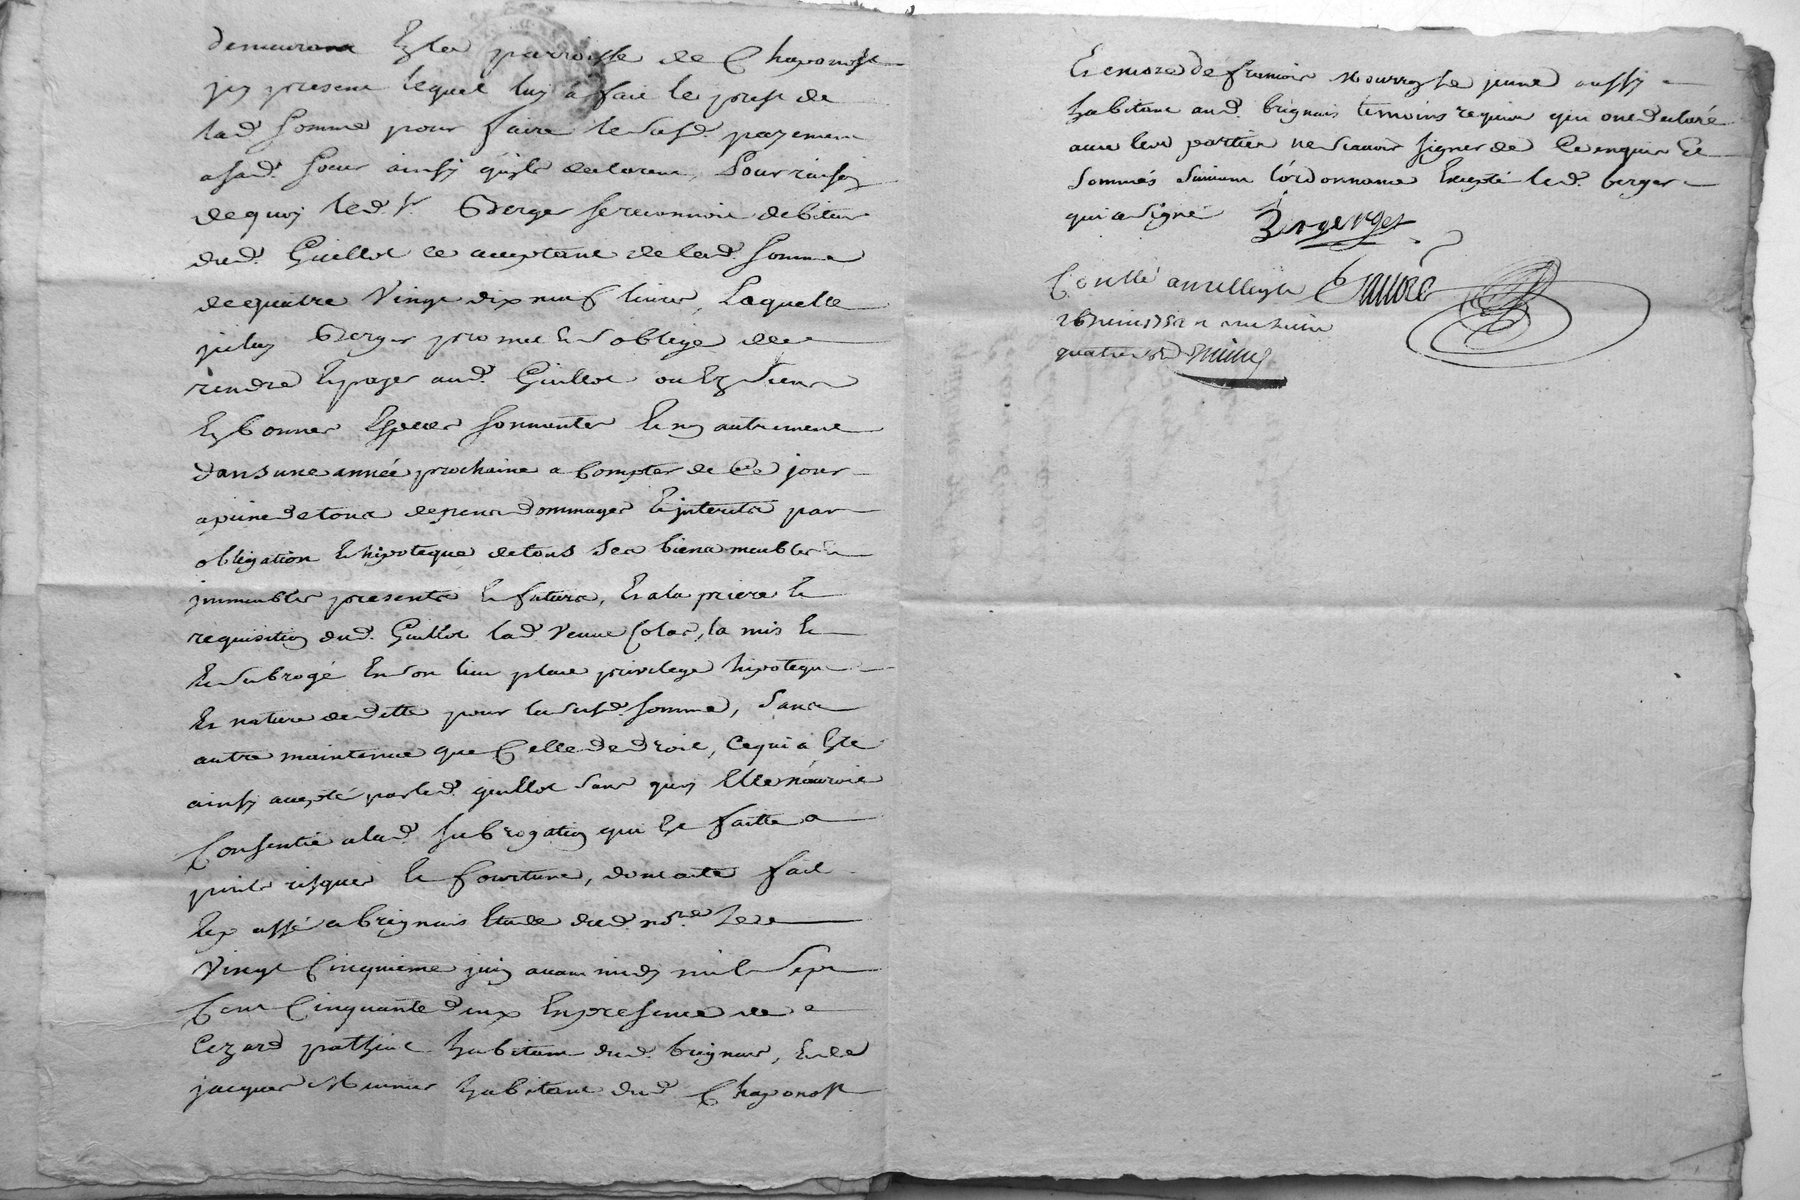 demeurant En la parroisse de Chaponost
jcy present lequel luy a fait le prest de
lad. somme pour faire le susd. payement
a sad. soeur ainsy qu'ils declarent, Pour raison
de quoy led. Sr. Berger se reconnoit debiteur
dud. Guillot ce acceptant de lad. somme
de quatre Vingt dix neuf livres, Laquelle
jceluy Berger promet Et s'oblige de
rendre Et payer aud. Guillot ou Ez siens
En bonnes Especes sonnantes Et non autrement
dans une année prochaine a Compter de Ce jour
a peine de tous depens dommages Et jnterets par
obligation Et hipoteque de tous ses biens meubles Et
jmmeubles presents Et futurs, Et a la priere Et
requisition dud. Guillot lad. Veuve Colas, la mis Et
Et subrogé En son lieu place privilege hipoteque
Et nature de dette pour la susd. somme, sans
autre maintenue que Celle de droit, Ce qui a Eté
ainsy accepté par led. guillot sans quoy Elle n'auroit
Consentie a lad. subrogation qui Est faitte a
perils risques Et fourtune, dont acte fait
Et passé a brignais Etude dud. nore. Le
Vingt Cinquieme juin avant midy mil sept
Cent Cinquante deux En presence de
Cezard pathiot habitant dud. brignais, Et de
jacques Munier habitant dud. Chaponost
Et encore de françois Mourroy le jeune aussy
habitant aud. brignais temoins requis qui ont declaré
avec les parties ne scavoir signer de Ce enquis Et
sommés suivant l'ordonnance Excepté led. berger
qui a signé Berger
Conllé
quatre